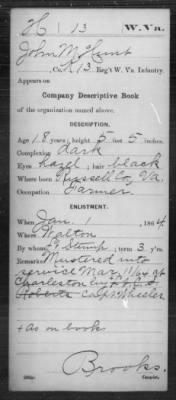 H 13 W.Va.
John M Hunt
Co. K, 13 Reg't W. Va. Infantry.
Appears on
Company Descriptive Book
of the organization named above.
DESCRIPTION.
Age 18 years; height 5 feet 5 inches.
Complexion dark
Eyes Hazel; hair black
Where born Russell Co, Va.
Occupation Farmer
ENLISTMENT.
When Jan. 1, 1864
Where Walton
By whom Stump; term 3 y'rs.
Remarks: Mustered into
service Mar. 11/64 at
Charleston by
Roberts Capt. Wheeler
+ as on book
Brooks.
Copyist.